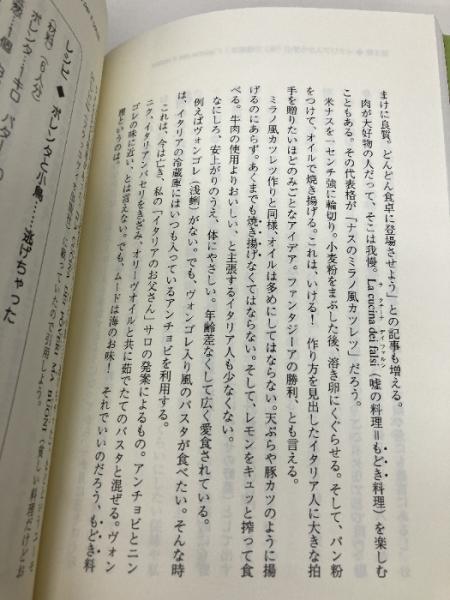 まけに良質。どんどん食卓に登場させよう」との記事も増える。
肉が大好物の人だって、そこは我慢。La cucina dei falsi（嘘の料理＝もどき料理）を楽しむ
こともある。その代表格が「ナスのミラノ風カツレツ」だろう。
米ナスを一センチ強に輪切り。小麦粉をまぶした後、溶き卵にくぐらせる。そして、パン粉
をつけて、オイルで焼き揚げる。これは、いける！　作り方を見出したイタリア人に大きな拍
手を贈りたいほどのみごとなアイデア。ファンタジーアの勝利、とも言える。
ミラノ風カツレツ作りと同様、オイルは多めにしてはならない。天ぷらや豚カツのように揚
げるのにあらず。あくまでも焼き揚げなくてはならない。そして、レモンをキュッと搾って食
べる。牛肉の使用よりおいしい、と主張するイタリア人も少なくない。
なにしろ、安上がりのうえ、体にやさしい。年齢差なくして広く愛食されている。
例えばヴォンゴレ（浅蜊）がない。でも、ヴォンゴレ入り風のパスタが食べたい。そんな時
は、イタリアの冷蔵庫にはいつも入っているアンチョビを利用する。
これは、今は亡き、私の「イタリアのお父さん」サロの発案によるもの。アンチョビとニン
ニク、イタリアンパセリをきざみ、オリーヴオイルと共に茹でたてのパスタと混ぜる。ヴォン
ゴレの味に近い、とは言えない。でも、ムードは海のお味！　それでいいのだろう、もどき料
理というのは。
レシピ◆ポレンタと小鳥……逃げちゃった